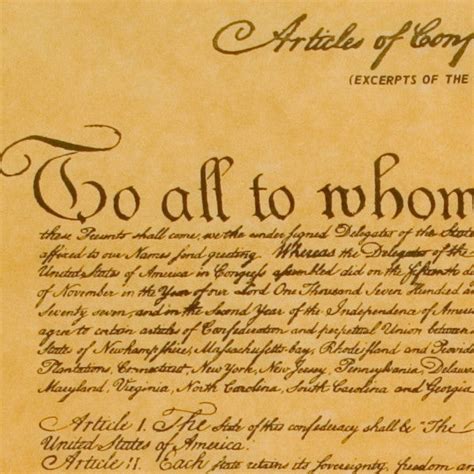 Articles of Conf
(EXCERPTS OF THE
To all to whom
these Presents shall come, we the under signed Delegates of the State
affixed to our Names send greeting Whereas the Delegates of the
United States of America in Congress assembled did on the fifteenth d
of November in the Year of our Lord One Thousand Seven Hundred a
Seventy seven, and in the Second Year of the Independence of Ameri
agree to certain articles of Confederation and perpetual Union between
State of Newhampshire, Massachusetts-bay, Rhodeisland and Provide
Plantations, Connecticut, New York, New Jersey, Pennsylvania, Delawa
Maryland, Virginia, North Carolina, South Carolina and Georgia
Article I. The State of this confederacy shall & "The
United States of America.
Article II. Each state retains its Sovereignty, freedom an